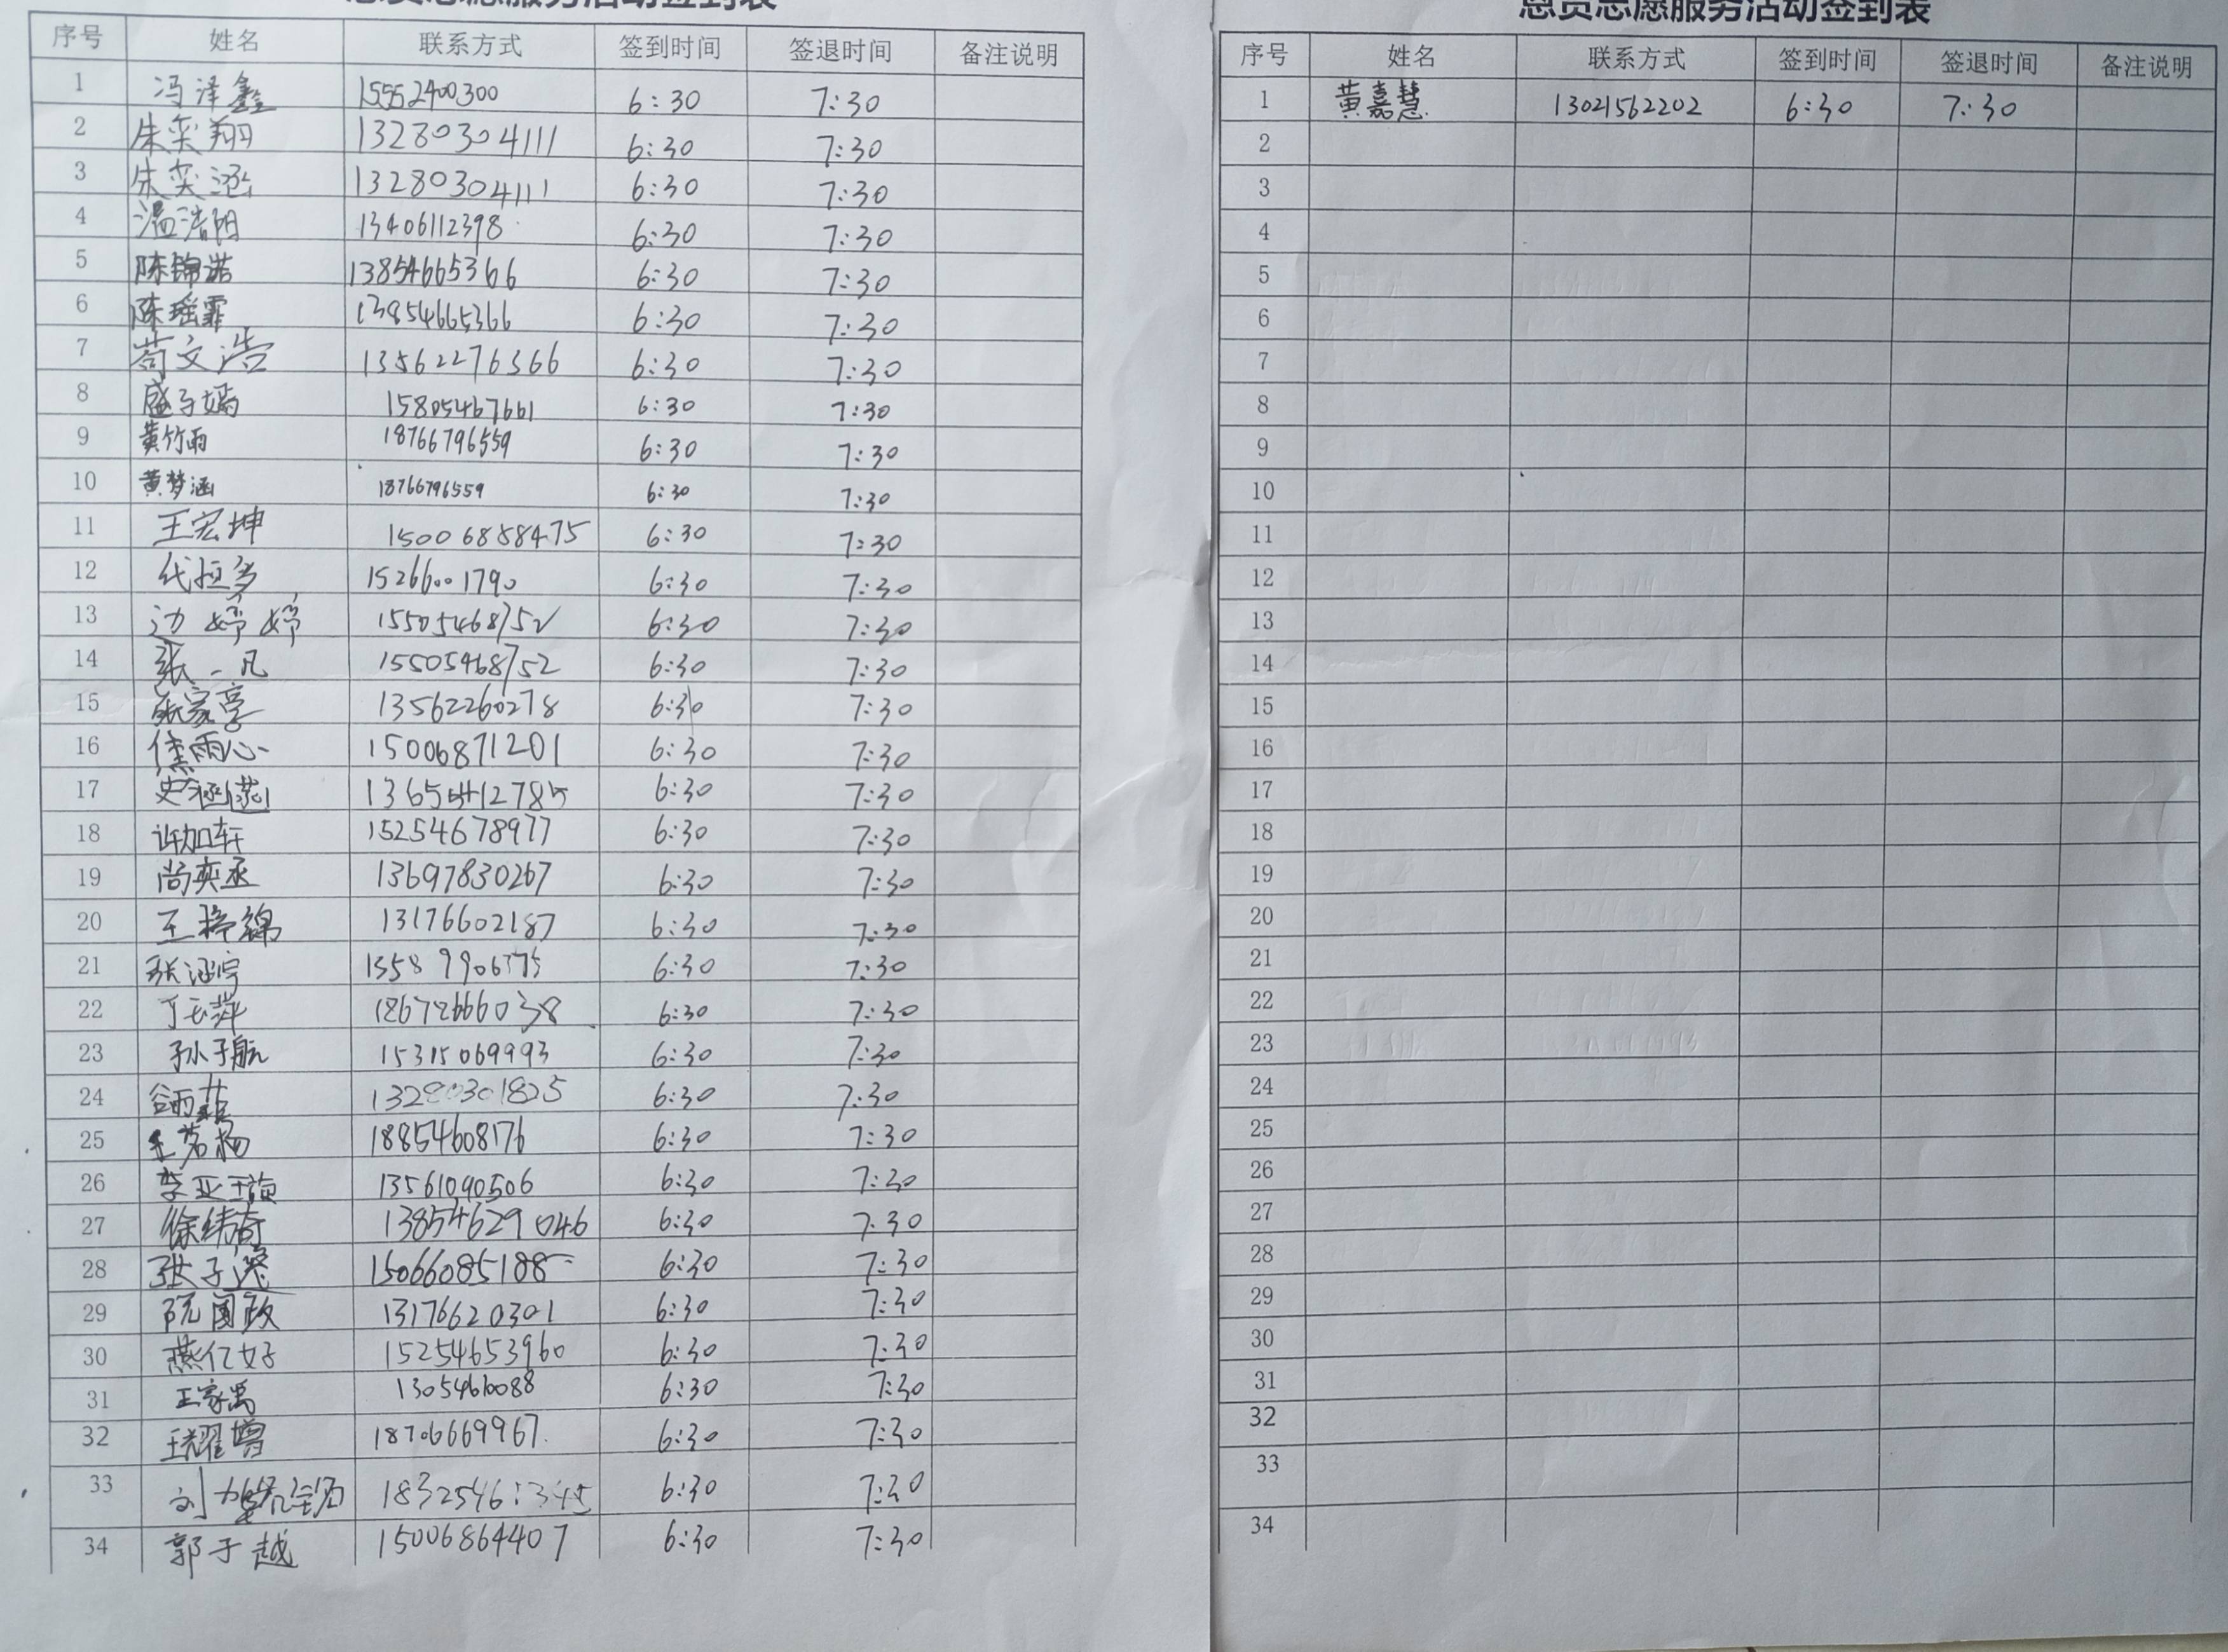 志愿服务活动签到表
序号 姓名 联系方式 签到时间 签退时间 备注说明
1 冯泽鑫 15552400300 6:30 7:30
2 朱奕翔 13280304111 6:30 7:30
3 朱奕涵 13280304111 6:30 7:30
4 温浩阳 13406112398 6:30 7:30
5 陈锦诺 13854665366 6:30 7:30
6 陈瑶霏 13854665366 6:30 7:30
7 苟文浩 13562276366 6:30 7:30
8 盛子嫣 15805467661 6:30 7:30
9 黄竹雨 18766796559 6:30 7:30
10 黄梦涵 18766796559 6:30 7:30
11 王宏坤 15006858475 6:30 7:30
12 代恒多 15266001790 6:30 7:30
13 边婷婷 15505468752 6:30 7:30
14 张一凡 15505468752 6:30 7:30
15 张家享 13562260278 6:30 7:30
16 雨心 15006871201 6:30 7:30
17 史涵 6:30 7:30
18 许加轩 15254678977 6:30 7:30
19 尚奕丞 13697830267 6:30 7:30
20 王婷锦 13176602187 6:30 7:30
21 张涵宇 6:30 7:30
22 丁玉萍 18678666038 6:30 7:30
23 孙子航 15315069993 6:30 7:30
24 谷雨菲 13280301825 6:30 7:30
25 王茗杨 18854608176 6:30 7:30
26 李亚璇 13561090506 6:30 7:30
27 徐绮奇 13854629046 6:30 7:30
28 张子 15066085188 6:30 7:30
29 阮国政 13176620301 6:30 7:30
30 燕亿好 15254653960 6:30 7:30
31 王家禹 13054610088 6:30 7:30
32 王耀增 18706669967 6:30 7:30
33 刘 6:30 7:30
34 郭于越 15006864407 6:30 7:30
志愿服务活动签到表
序号 姓名 联系方式 签到时间 签退时间 备注说明
1 黄嘉慧 13021562202 6:30 7:30
2
3
4
5
6
7
8
9
10
11
12
13
14
15
16
17
18
19
20
21
22
23
24
25
26
27
28
29
30
31
32
33
34